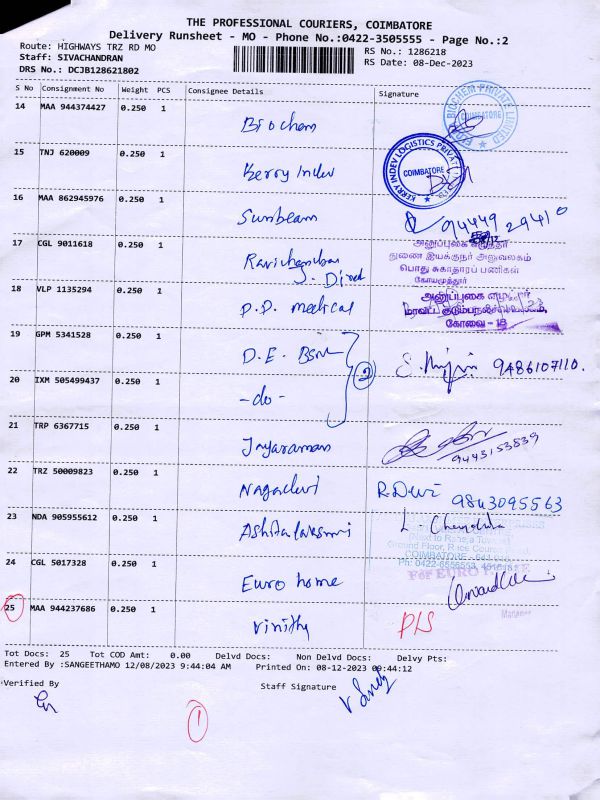 THE PROFESSIONAL COURIERS, COIMBATORE
Delivery Runsheet - MO - Phone No.:0422-3505555 - Page No.:2
Route: HIGHWAYS TRZ RD MO
RS No.: 1286218
Staff: SIVACHANDRAN
RS Date: 08-Dec-2023
DRS No.: DCJB128621802
S No Consignment No Weight PCS Consignee Details Signature
14 MAA 944374427 0.250 1 Biochem
BIOCHEM PRIVATE LIMITED
COIMBATORE
15 TNJ 620009 0.250 1 Kerry Indev
KERRY INDEV LOGISTICS PRIVATE LIMITED
COIMBATORE
16 MAA 862945976 0.250 1 Sunbeam 94449 29410
17 CGL 9011618 0.250 1
துணை இயக்குநர் அலுவலகம்
பொது சுகாதாரப் பணிகள்
கோயமுத்தூர்
18 VLP 1135294 0.250 1 D.D. medical
கோவை - 18
19 GPM 5341528 0.250 1 D.E. BSNL
2
9486107110.
20 IXM 505499437 0.250 1 -do-
21 TRP 6367715 0.250 1 Jayaraman
9443153839
22 TRZ 50009823 0.250 1 Nagadevi R.Devi 9843095563
23 NDA 905955612 0.250 1 Ashtalakshmi
COIMBATORE
24 CGL 5017328 0.250 1 Euro home
For EURO
Manager
25 MAA 944237686 0.250 1 Vinithy P/S
Tot Docs: 25 Tot COD Amt: 0.00 Delvd Docs: Non Delvd Docs: Delvy Pts:
Entered By :SANGEETHAMO 12/08/2023 9:44:04 AM Printed On: 08-12-2023 09:44:12
Verified By
Staff Signature
1